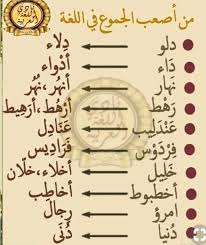 من أصعب الجموع في اللغة
دلو ← دِلاء
دَاء ← أدْوَاء
نَهار ← أنهُر، نُهُر
رَهْط ← أرْهُط، أرَهِيط
عَنْدَلِيب ← عَنَادِل
فِرْدَوْس ← فَرَادِيس
خَلِيل ← أخلاء، خُلّان
أخطبوط ← أخاطِب
امرؤ ← رِجال
دُنيا ← دُنَى
نادي
اللغة
العربية